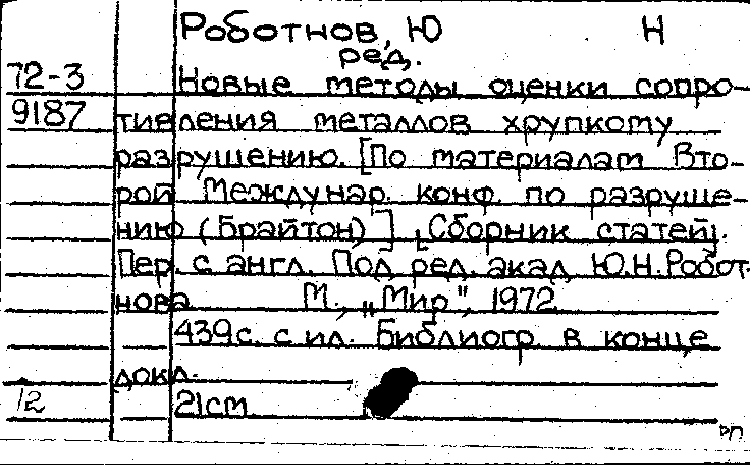 Роботнов, Ю Н
ред.
72-3 Новые методы оценки сопро-
9187 тивления металлов хрупкому
разрушению. [По материалам Вто-
рой Междунар. конф. по разруше-
нию (Брайтон)]. [Сборник статей].
Пер. с англ. Под ред. акад. Ю.Н. Робот-
нова М., „Мир", 1972
439с. с ил. Библиогр. в конце
докл.
12 21см
рп